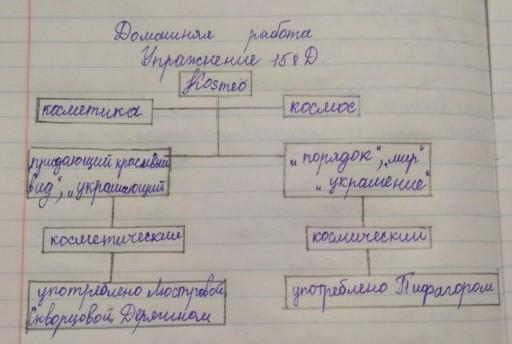 Домашняя работа
Упражнение 158 Д.
Kosmeo
косметика
космос
придающий красивый
вид", "украшающий
"порядок", "мир"
"украшение"
косметический
космический
употреблено Люстровой,
Скворцовой, Дерягином
употреблено Пифагором